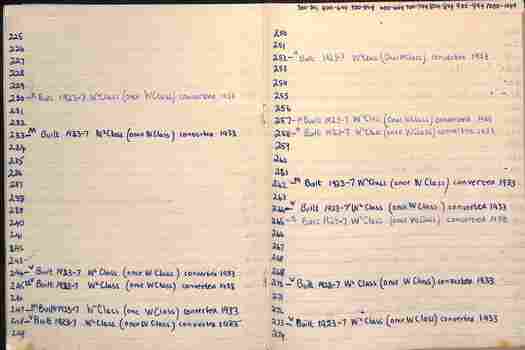 225
226
227
228
229
230 Built 1923-7 Wᴬ Class (once W Class) converted 1933
231
232
233 ᴹ Built 1923-7 Wᴬ Class (once W Class) converted 1933
234
235
236
237
238
239
240
241
242
243
244 ᵛ Built 1923-7 Wᴬ Class (once W Class) converted 1933
245 ᵛ Built 1923-7 Wᴬ Class (once W Class) converted 1933
246
247 ᴹ Built 1923-7 Wᴬ Class (once W Class) converted 1933
248 ᵛ Built 1923-7 Wᴬ Class (once W Class) converted 1933
249
250
251
252 Built 1923-7 Wᴬ Class (Once W Class) converted 1933
253
254
255
256
257 Built 1923-7 Wᴬ Class (once W Class) converted 1933
258 Built 1923-7 Wᴬ Class (once W Class) converted 1933
259
260
261
262 ᴹ Built 1923-7 Wᴬ Class (once W Class) converted 1933
263
264 ᵛ Built 1923-7 Wᴬ Class (once W Class) converted 1933
265 Built 1923-7 Wᴬ Class (once W Class) converted 1933
266
267
268
269
270 Built 1923-7 Wᴬ Class (once W Class) converted 1933
271
272
273 ᵛ Built 1923-7 Wᴬ Class (once W Class) converted 1933
274